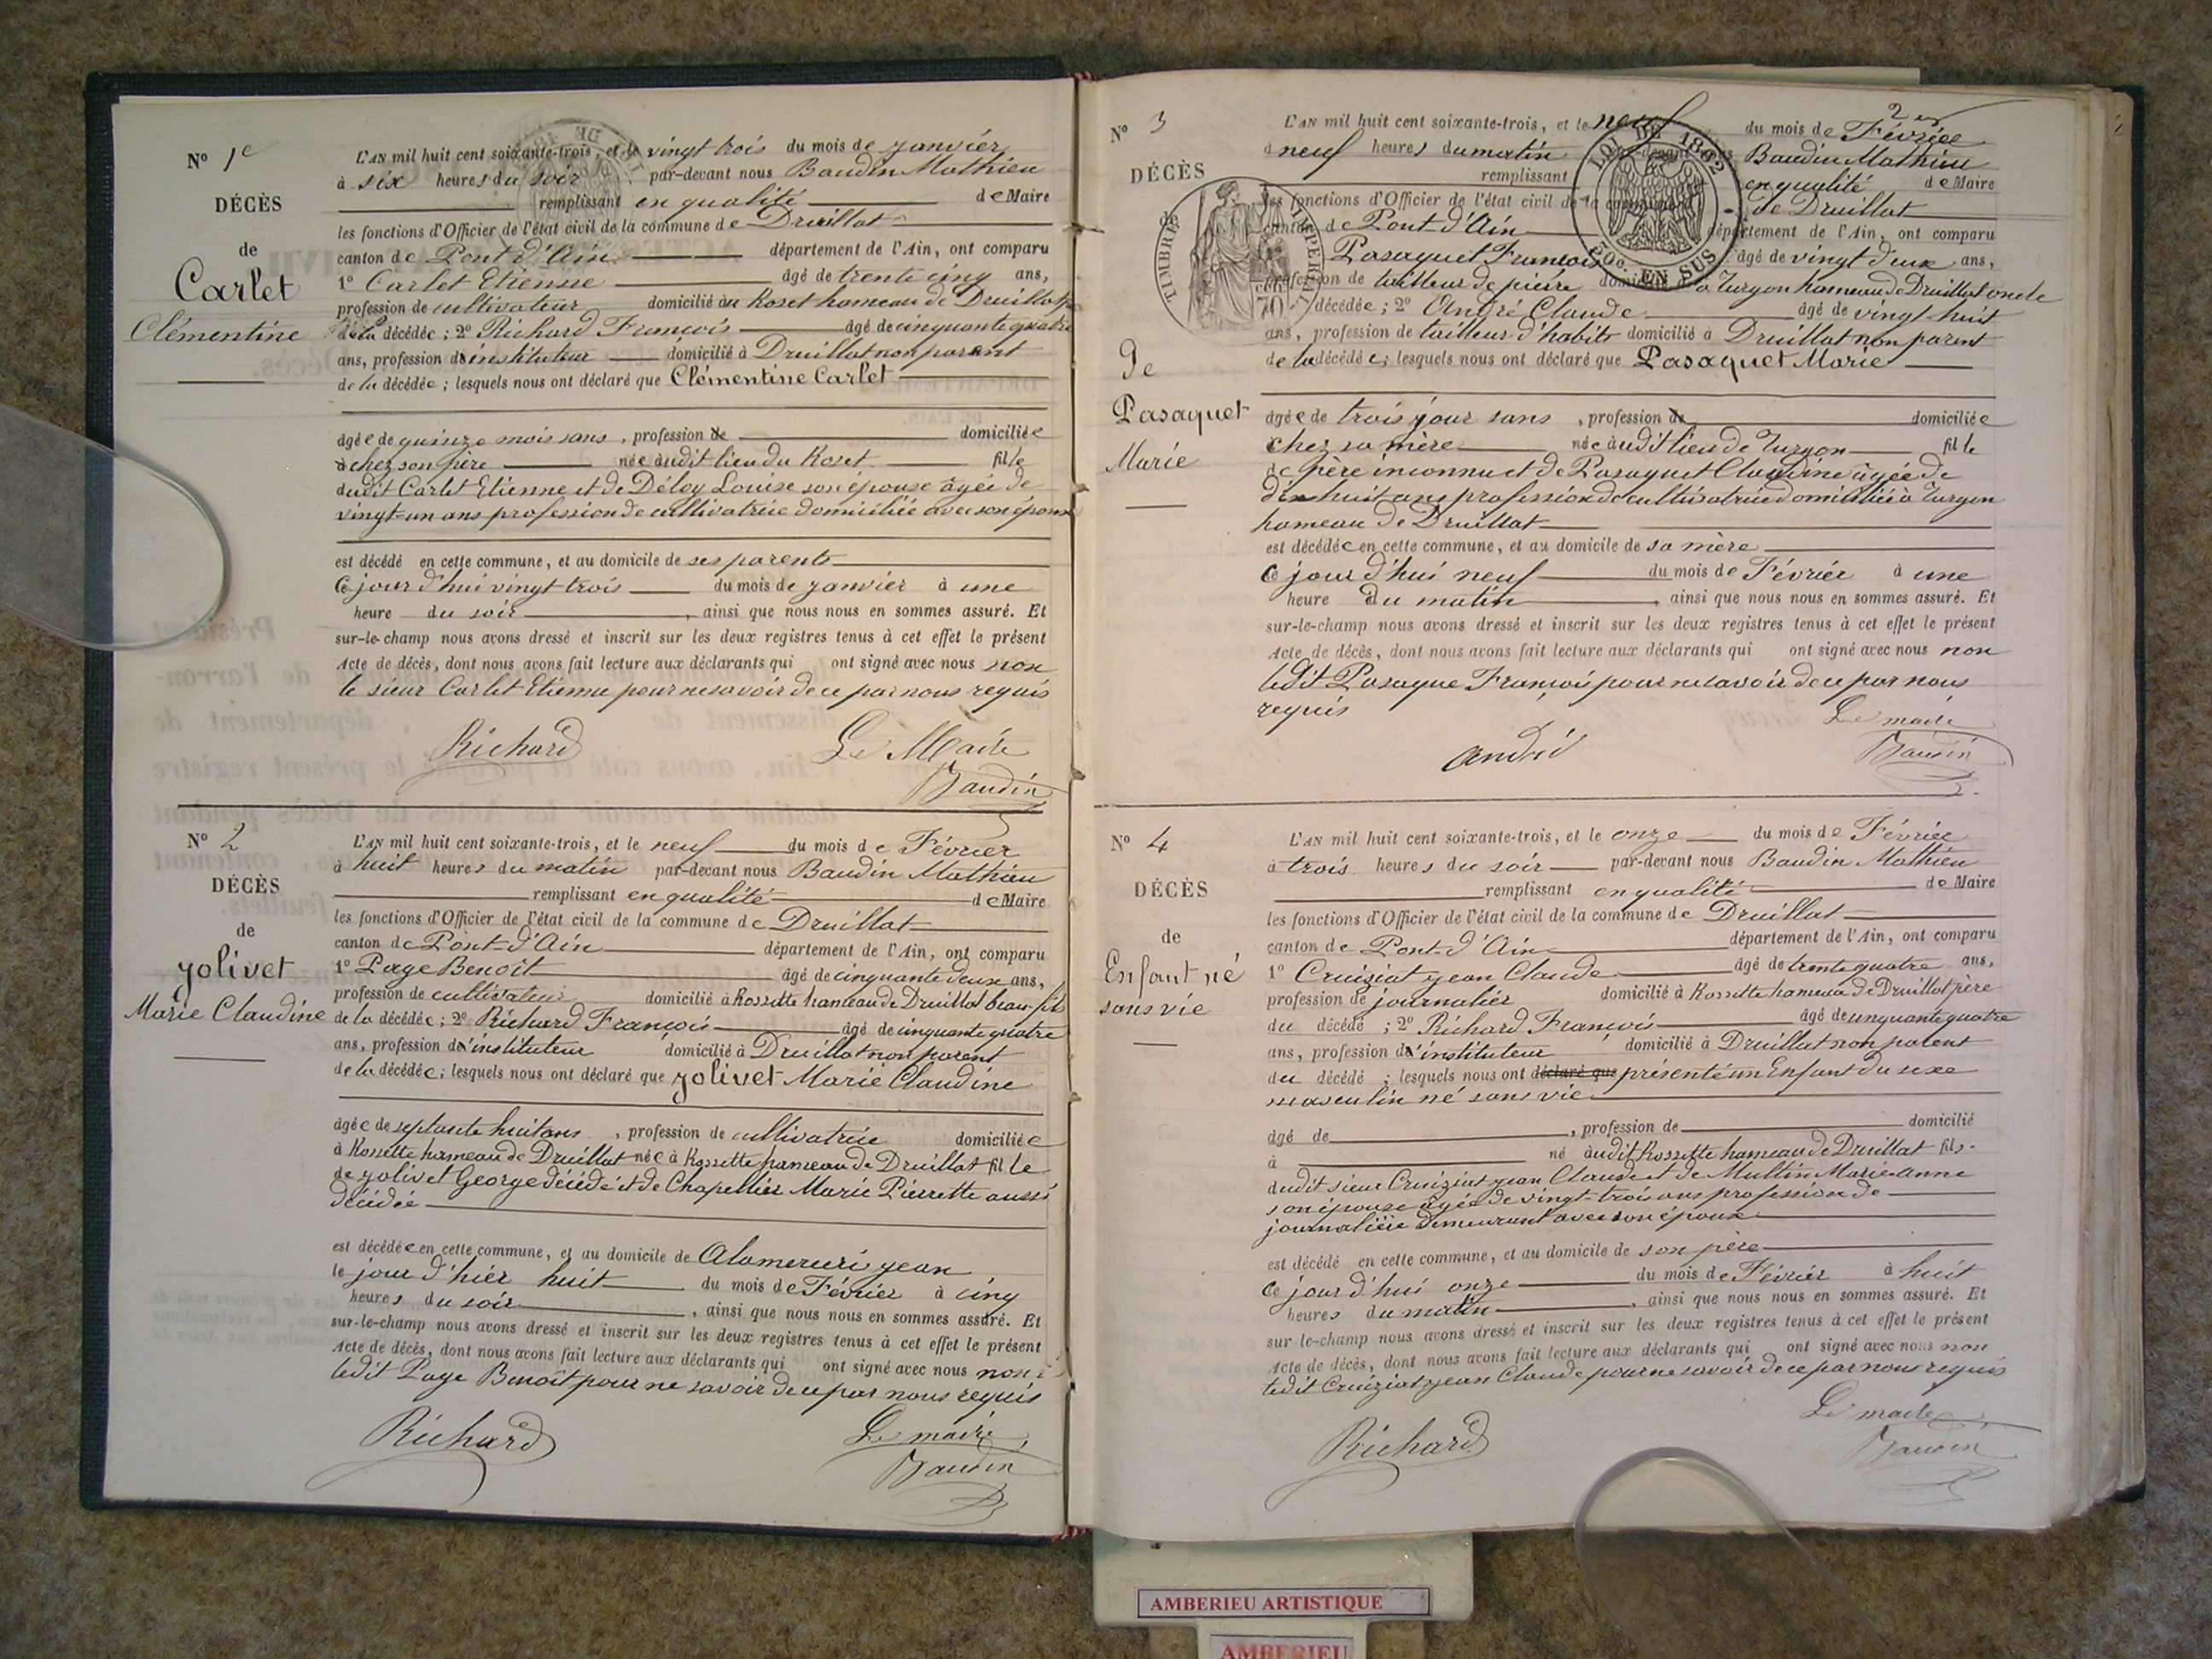 Nº 1e
DÉCÈS
de
Carlet
Clémentine
L'AN mil huit cent soixante-trois, et le vingt trois du mois de janvier
à six heures du soir par-devant nous Baudin Mathieu
remplissant en qualité de Maire
les fonctions d'Officier de l'état civil de la commune de Druillat
canton de Pont d'Ain département de l'Ain, ont comparu
1º Carlet Etienne âgé de trente cinq ans,
profession de cultivateur domicilié au Roset hameau de Druillat
de la décédée ; 2º Richard François âgé de cinquante quatre
ans, profession d'instituteur domicilié à Druillat non parent
de la décédée ; lesquels nous ont déclaré que Clémentine Carlet
âgée de quinze mois sans , profession de domiciliée
chez son père née audit lieu du Roset fille
dudit Carlet Etienne et de Déloy Louise son épouse âgée de
vingt-un ans profession de cultivatrice domiciliée avec son époux
est décédé en cette commune, et au domicile de ses parents
Ce jour d'hui vingt trois du mois de janvier à une
heure du soir , ainsi que nous nous en sommes assuré. Et
sur-le-champ nous avons dressé et inscrit sur les deux registres tenus à cet effet le présent
Acte de décès, dont nous avons fait lecture aux déclarants qui ont signé avec nous non
le sieur Carlet Etienne pour ne savoir de ce par nous requis
Richard Le Maire
Baudin
Nº 2
DÉCÈS
de
Jolivet
Marie Claudine
L'AN mil huit cent soixante-trois, et le neuf du mois de Février
à huit heures du matin par-devant nous Baudin Mathieu
remplissant en qualité de Maire
les fonctions d'Officier de l'état civil de la commune de Druillat
canton de Pont-d'Ain département de l'Ain, ont comparu
1º Page Benoît âgé de cinquante deux ans,
profession de cultivateur domicilié à Rossette hameau de Druillat beau-fils
de la décédée ; 2º Richard François âgé de cinquante quatre
ans, profession d'instituteur domicilié à Druillat non parent
de la décédée ; lesquels nous ont déclaré que Jolivet Marie Claudine
âgée de septante huit ans , profession de cultivatrice domiciliée
à Rossette hameau de Druillat née à Rossette hameau de Druillat fille
de Jolivet George décédé et de Chapellier Marie Pierrette aussi
décédée
est décédée en cette commune, et au domicile de Alamercuri Jean
le jour d'hier huit du mois de Février à cinq
heures du soir , ainsi que nous nous en sommes assuré. Et
sur-le-champ nous avons dressé et inscrit sur les deux registres tenus à cet effet le présent
Acte de décès, dont nous avons fait lecture aux déclarants qui ont signé avec nous non
ledit Page Benoit pour ne savoir de ce par nous requis
Richard Le maire
Baudin
2
Nº 3
DÉCÈS
De
Pasaquet
Marie
TIMBRE IMPERIAL
70
LOI DE 1862
50c. EN SUS
L'AN mil huit cent soixante-trois, et le neuf du mois de Février
à neuf heures du matin Baudin Mathieu
remplissant en qualité de Maire
les fonctions d'Officier de l'état civil de la commune de Druillat
canton de Pont d'Ain département de l'Ain, ont comparu
Pasaquet François âgé de vingt deux ans,
profession de tailleur de pierre domicilié à Turgon hameau de Druillat oncle
décédée ; 2º André Claude âgé de vingt-huit
ans, profession de tailleur d'habits domicilié à Druillat non parent
de la décédée ; lesquels nous ont déclaré que Pasaquet Marie
âgée de trois jour sans , profession de domiciliée
chez sa mère née audit lieu de Turgon fille
de père inconnu et de Pasaquet Claudine âgée de
dix huit ans profession de cultivatrice domiciliée à Turgon
hameau de Druillat
est décédée en cette commune, et au domicile de sa mère
Ce jour d'hui neuf du mois de Février à une
heure du matin , ainsi que nous nous en sommes assuré. Et
sur-le-champ nous avons dressé et inscrit sur les deux registres tenus à cet effet le présent
Acte de décès, dont nous avons fait lecture aux déclarants qui ont signé avec nous non
ledit Pasaque François pour ne savoir de ce par nous
requis
Le maire
André Baudin
Nº 4
DÉCÈS
de
Enfant né
sans vie
L'AN mil huit cent soixante-trois, et le onze du mois de Février
à trois heures du soir par-devant nous Baudin Mathieu
remplissant en qualité de Maire
les fonctions d'Officier de l'état civil de la commune de Druillat
canton de Pont-d'Ain département de l'Ain, ont comparu
1º Cruiziat Jean Claude âgé de trente quatre ans,
profession de journalier domicilié à Rossette hameau de Druillat père
du décédé ; 2º Richard François âgé de cinquante quatre
ans, profession d'instituteur domicilié à Druillat non parent
du décédé ; lesquels nous ont déclaré que présenté un Enfant du sexe
masculin né sans vie
âgé de , profession de domicilié
à né audit Rossette hameau de Druillat fils
dudit sieur Cruiziat Jean Claude et de Multin Marie anne
son épouse âgée de vingt-trois ans profession de
journalière demeurant avec son époux
est décédé en cette commune, et au domicile de son père
Ce jour d'hui onze du mois de Février à huit
heures du matin , ainsi que nous nous en sommes assuré. Et
sur-le-champ nous avons dressé et inscrit sur les deux registres tenus à cet effet le présent
Acte de décès, dont nous avons fait lecture aux déclarants qui ont signé avec nous non
ledit Cruiziat Jean Claude pour ne savoir de ce par nous requis
Le maire
Richard Baudin
AMBERIEU ARTISTIQUE
AMBERIEU